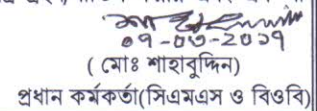 ০৭-০৩-2০১৭
( মোঃ শাহাবুদ্দিন)
প্রধান কর্মকর্তা(সিএমএস ও বিওবি)